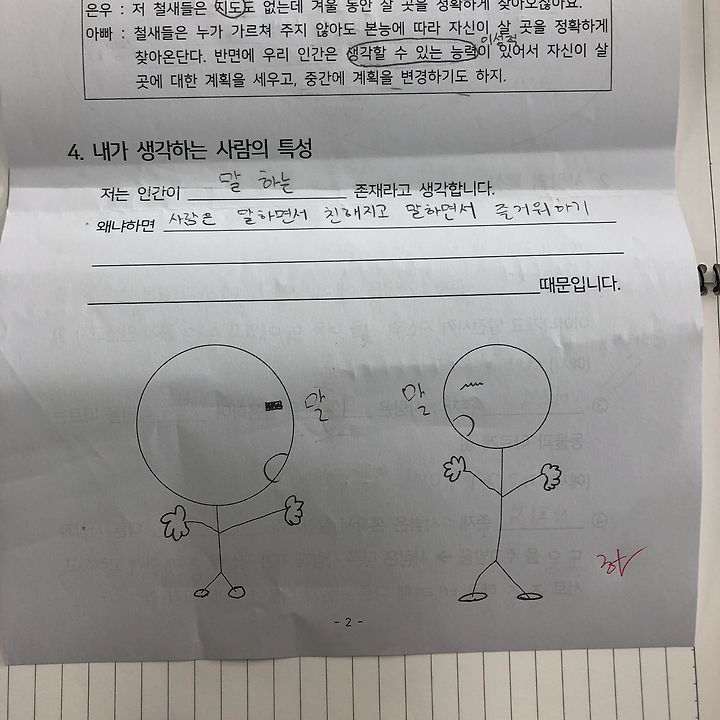 은우 : 저 철새들은 지도도 없는데 겨울 동안 살 곳을 정확하게 찾아오잖아요.
아빠 : 철새들은 누가 가르쳐 주지 않아도 본능에 따라 자신이 살 곳을 정확하게
이성적
찾아온단다. 반면에 우리 인간은 생각할 수 있는 능력이 있어서 자신이 살
곳에 대한 계획을 세우고, 중간에 계획을 변경하기도 하지.
4. 내가 생각하는 사람의 특성
저는 인간이 말 하는 존재라고 생각합니다.
왜냐하면 사람은 말하면서 친해지고 말하면서 즐거워하기
때문입니다.
말 말
- 2 -